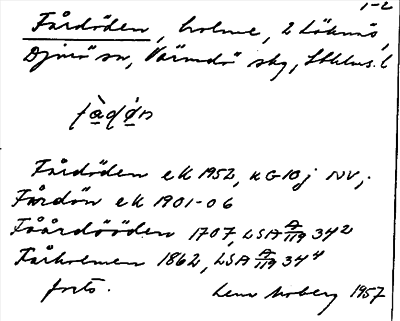 1-2
Fårdöden, holme, 2 Löknäs,
Djurö sn, Värmdö skg, Sthlms. l
Fårdöden ek 1952, KG 10 j NV,.
Fårdön ek 1901-06
Fåårdööden 1707, LSA A/119 34²
Fårholmen 1862, LSA A/119 34⁴
forts. Lena Moberg 1957